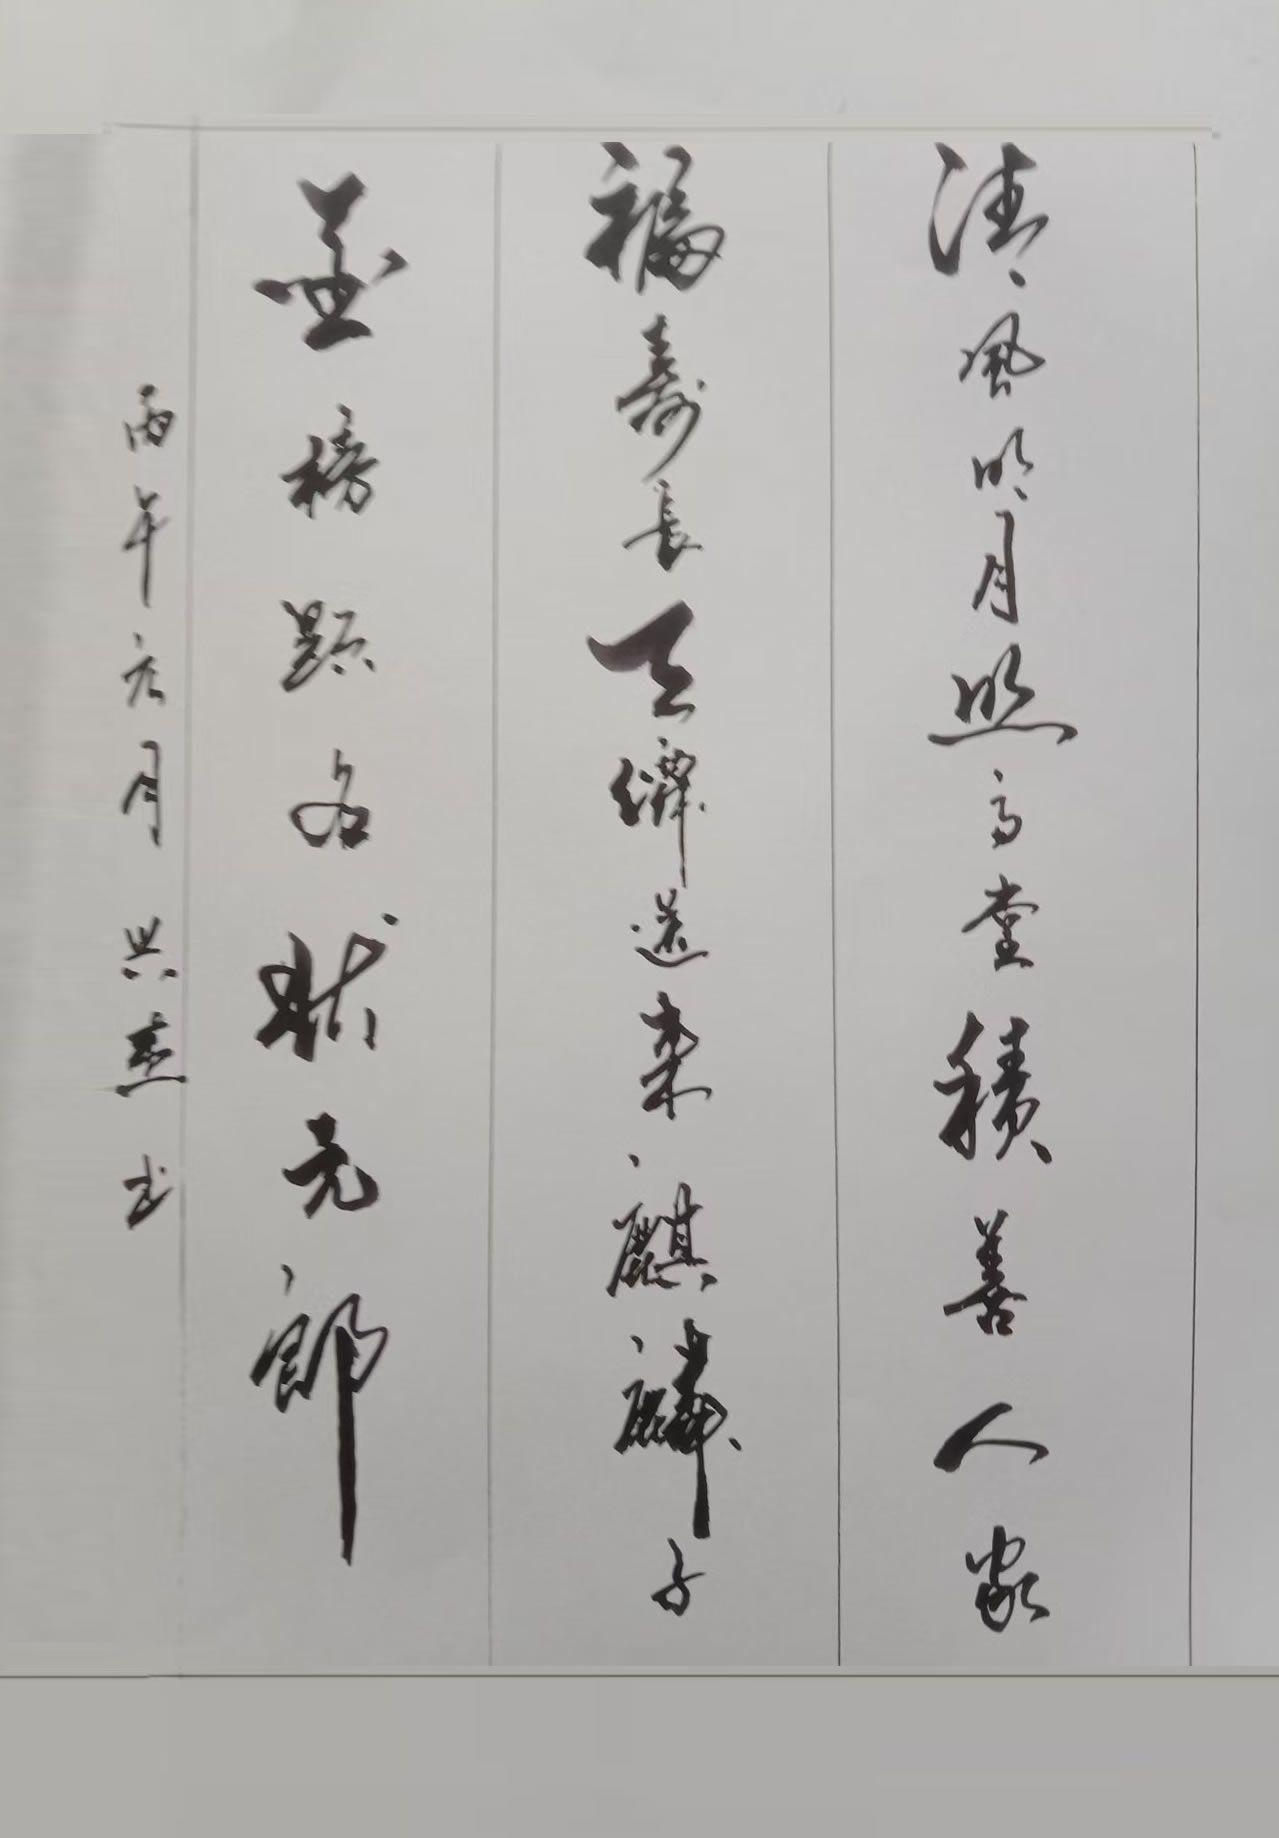 清風明月照高堂積善人家
福壽長天僊送來麒麟子
金榜題名狀元郎
丙午元月兴杰书